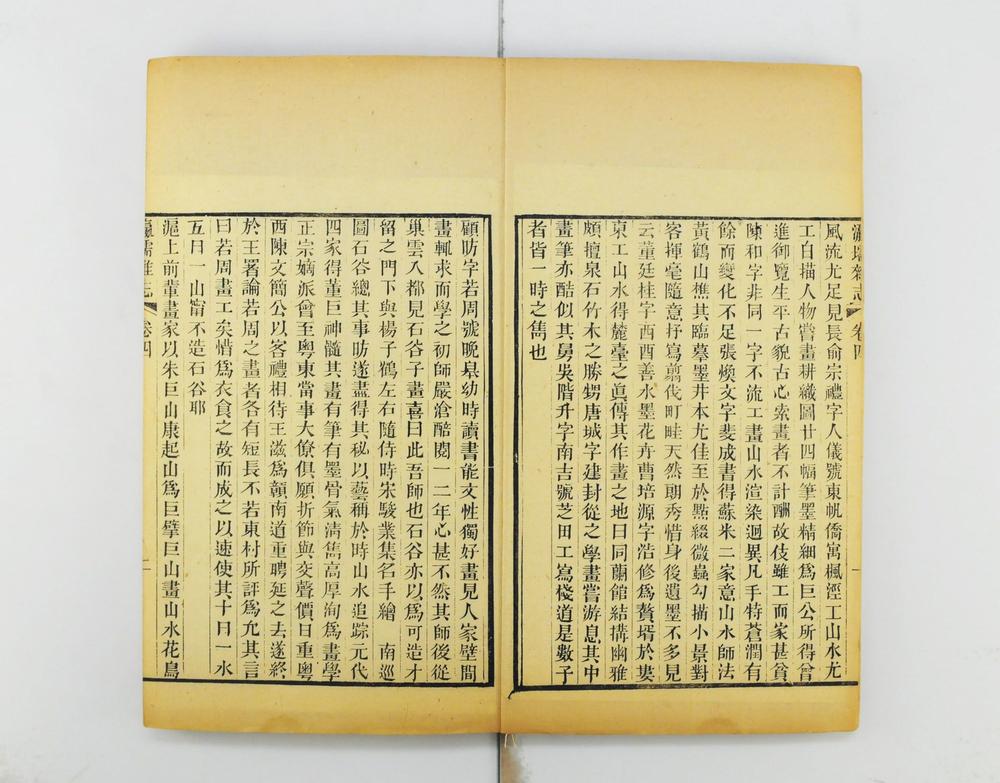 瀛壖雜志 卷四
風流尤足見長俞宗禮字人儀號東帆僑寓楓涇工山水尤
工白描人物嘗畫耕織圖廿四幅筆墨精細爲巨公所得曾
進御覽生平古貌古心索畫者不計酬故伎雖工而家甚貧
陳和字非同一字不流工畫山水渲染迥異凡手特蒼潤有
餘而變化不足張煥文字斐成書得蘇米二家意山水師法
黃鶴山樵其臨摹墨井本尤佳至於點綴微蟲勾描小景對
客揮毫隨意抒寫翦伐町畦天然朗秀惜身後遺墨不多見
云董廷桂字酉酉善水墨花卉曹培源字浩修爲贅壻於婁
東工山水得麓臺之眞傳其作畫之地曰同蘭館結構幽雅
頗擅泉石竹木之勝甥唐城字建封從之學畫嘗游息其中
畫筆亦酷似其舅吳階升字南吉號芝田工寫棧道是數子
者皆一時之雋也
顧昉字若周號晚皋幼時讀書能文性獨好畫見人家壁間
畫輒求而學之初師嚴滄醅閱一二年心甚不然其師後從
巢雲入都見石谷子畫喜曰此吾師也石谷亦以爲可造才
留之門下與楊子鶴左右隨侍時宋駿業集名手繪 南巡
圖石谷總其事昉遂盡得其秘以藝稱於時山水追踪元代
四家得董巨神髓其畫有筆有墨骨氣清雋高厚洵爲畫學
正宗嫡派曾至粵東當事大僚俱願折節與交聲價日重粵
西陳文簡公以客禮相待王滋爲贛南道重聘延之去遂終
於王署論若周之畫者各有短長不若東村所評爲允其言
曰若周畫工矣惜爲衣食之故而成之以速使其十日一水
五日一山甯不造石谷耶
滬上前輩畫家以朱巨山康起山爲巨擘巨山畫山水花鳥
瀛壖雜志 卷四